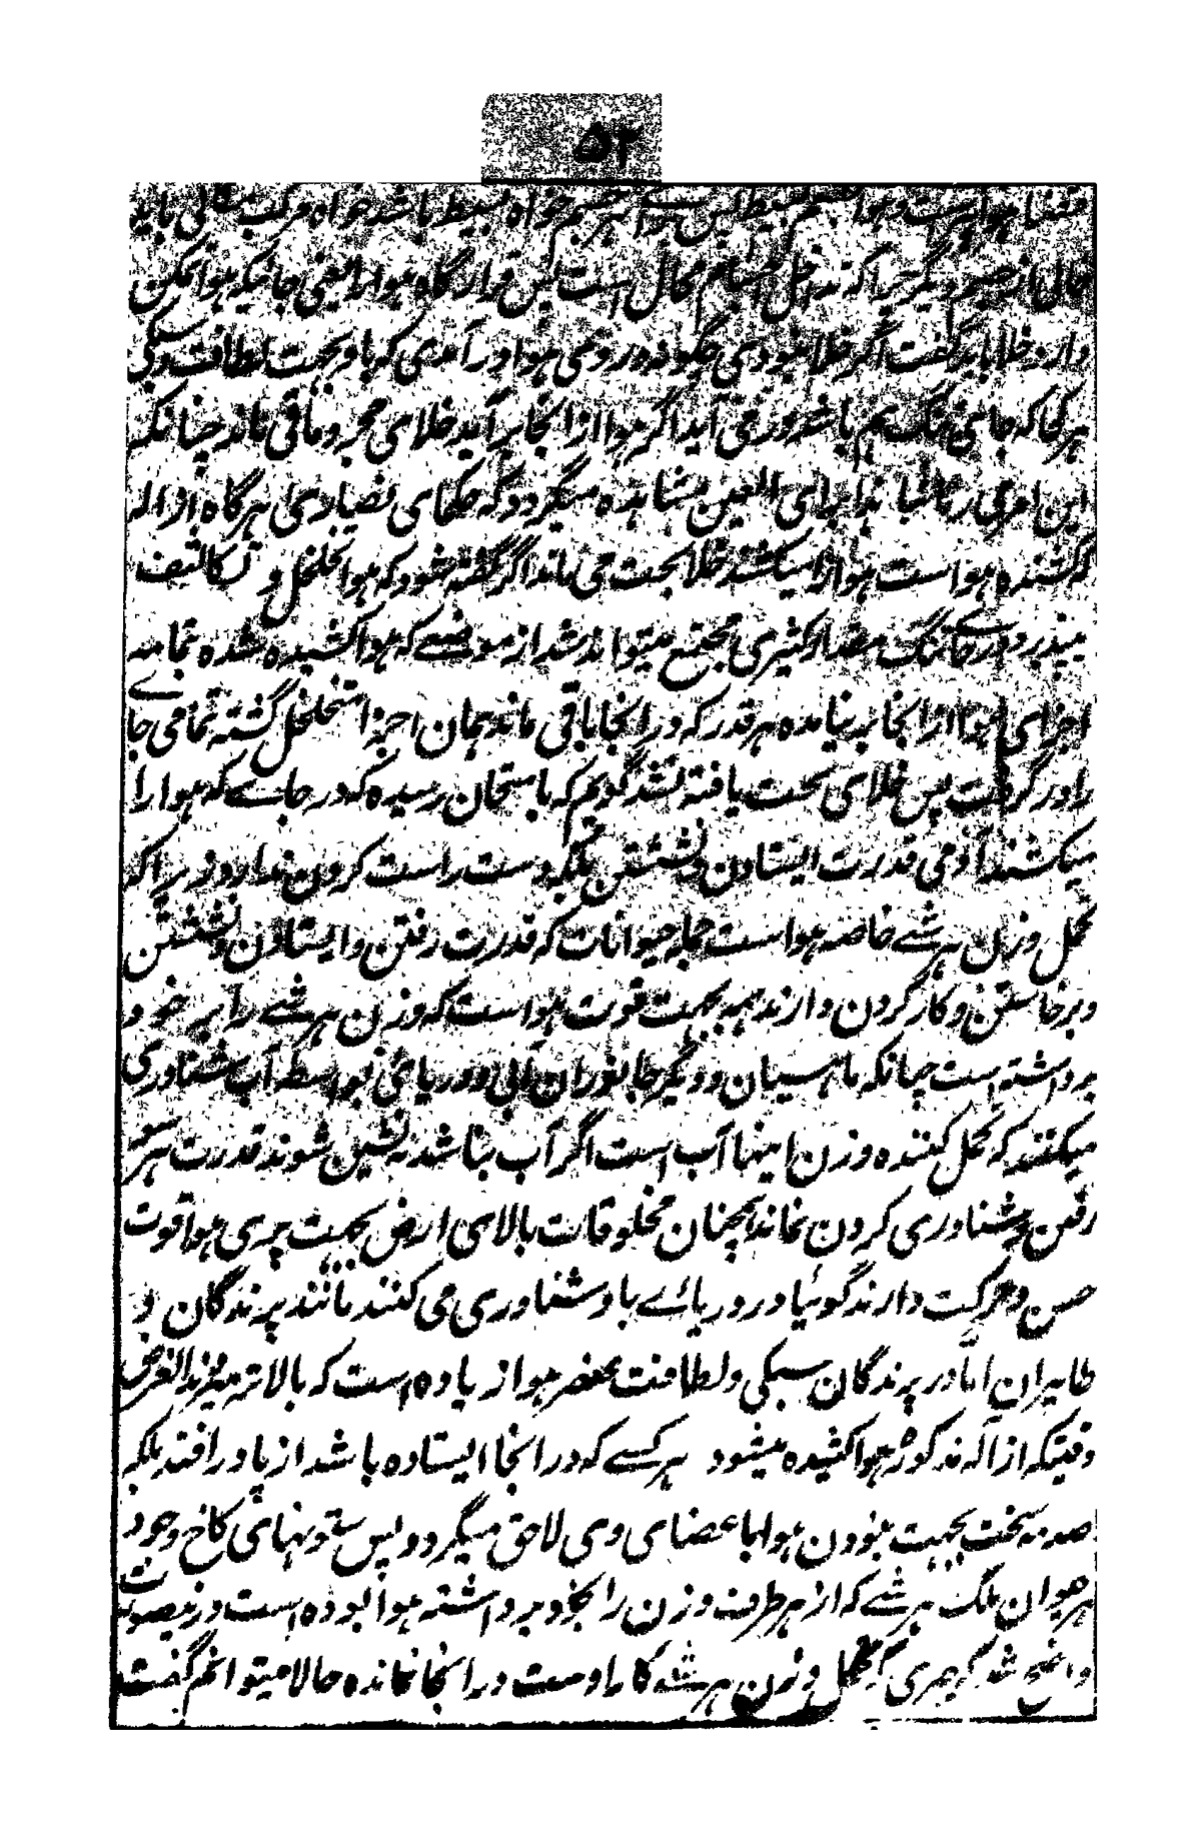 ۵۲
هوا بسیط پس هر جسم خواه بسیط باشد خواه مرکب باید
محال است پس قرارگاه هوا را یعنی جائیکه هوا تمکن
دارد خلا باید گفت اگر خلا نبودی چگونه درو می هوا در آمدی که باو بجهت لطافت و سبکی
هر کجا که جای تنگ هم باشد در می آید اگر هوا از انجا بر آید خلای مجرد باقی ماند چنانکه
این امر می برای العین مشاهده میگردد که حکمای نصاری هر گاه از اله
که کشنده هواست هوا را میکشند خلا بحت می ماند اگر گفته شود که هوا تخلخل و تکاثف
می پذیرد در جای تنگ مقدار کثیری مجتمع میتواند شد از موضعے که هوا کشیده شده تمامه
اجزای هوا از انجا بر نیامده هر قدر که در انجا باقی ماند همان اجزا متخلخل گشته تمامی جاے
را در گرفت پس خلای بحت یافته نشد گویم که بامتحان رسیده که در جاے که هوا را
میکشند آدمی قدرت ایستادن و نشستن بلکه دست راست کردن ندارد زیرا که
تحمل وزن هر شے خاصه هواست جمله حیوانات که قدرت رفتن و ایستادن و نشستن
و برخاستن و کار کردن دارند همه بجهت قوت هواست که وزن هر شے را بر خود
برداشته است چنانکه ماهیان و دیگر جانوران آبی و دریائی بواسطه آب شناوری
میکنند که تحمل کننده وزن اینها آب است اگر آب نباشد ته نشین شوند قدرت بر
رفتن و شناوری کردن نماند همچنان مخلوقات بالای ارض بجهت پری هوا قوت
حس و حرکت دارند گوئیا در دریاے باد شناوری می کنند مانند پرندگان و
طایران اما در پرندگان سبکی و لطافت بعنصر هوا زیاده است که بالاتر میپرند الغرض
وقتیکه از آله مذکوره هوا کشیده میشود هر کسے که در انجا ایستاده باشد از پا در افتد بلکه
صدمه سخت بجهت نبودن هوا باعضای وی لاحق میگردد پس ستونهای کاخ وجود
هر حیوان بلکه هر شے که از هر طرف وزن را بخود برداشته هوا بوده است درینصورت
واضح شد که چیزی که تحمل وزن هر شے کار اوست در انجا نمانده حالا میتوانم گفت